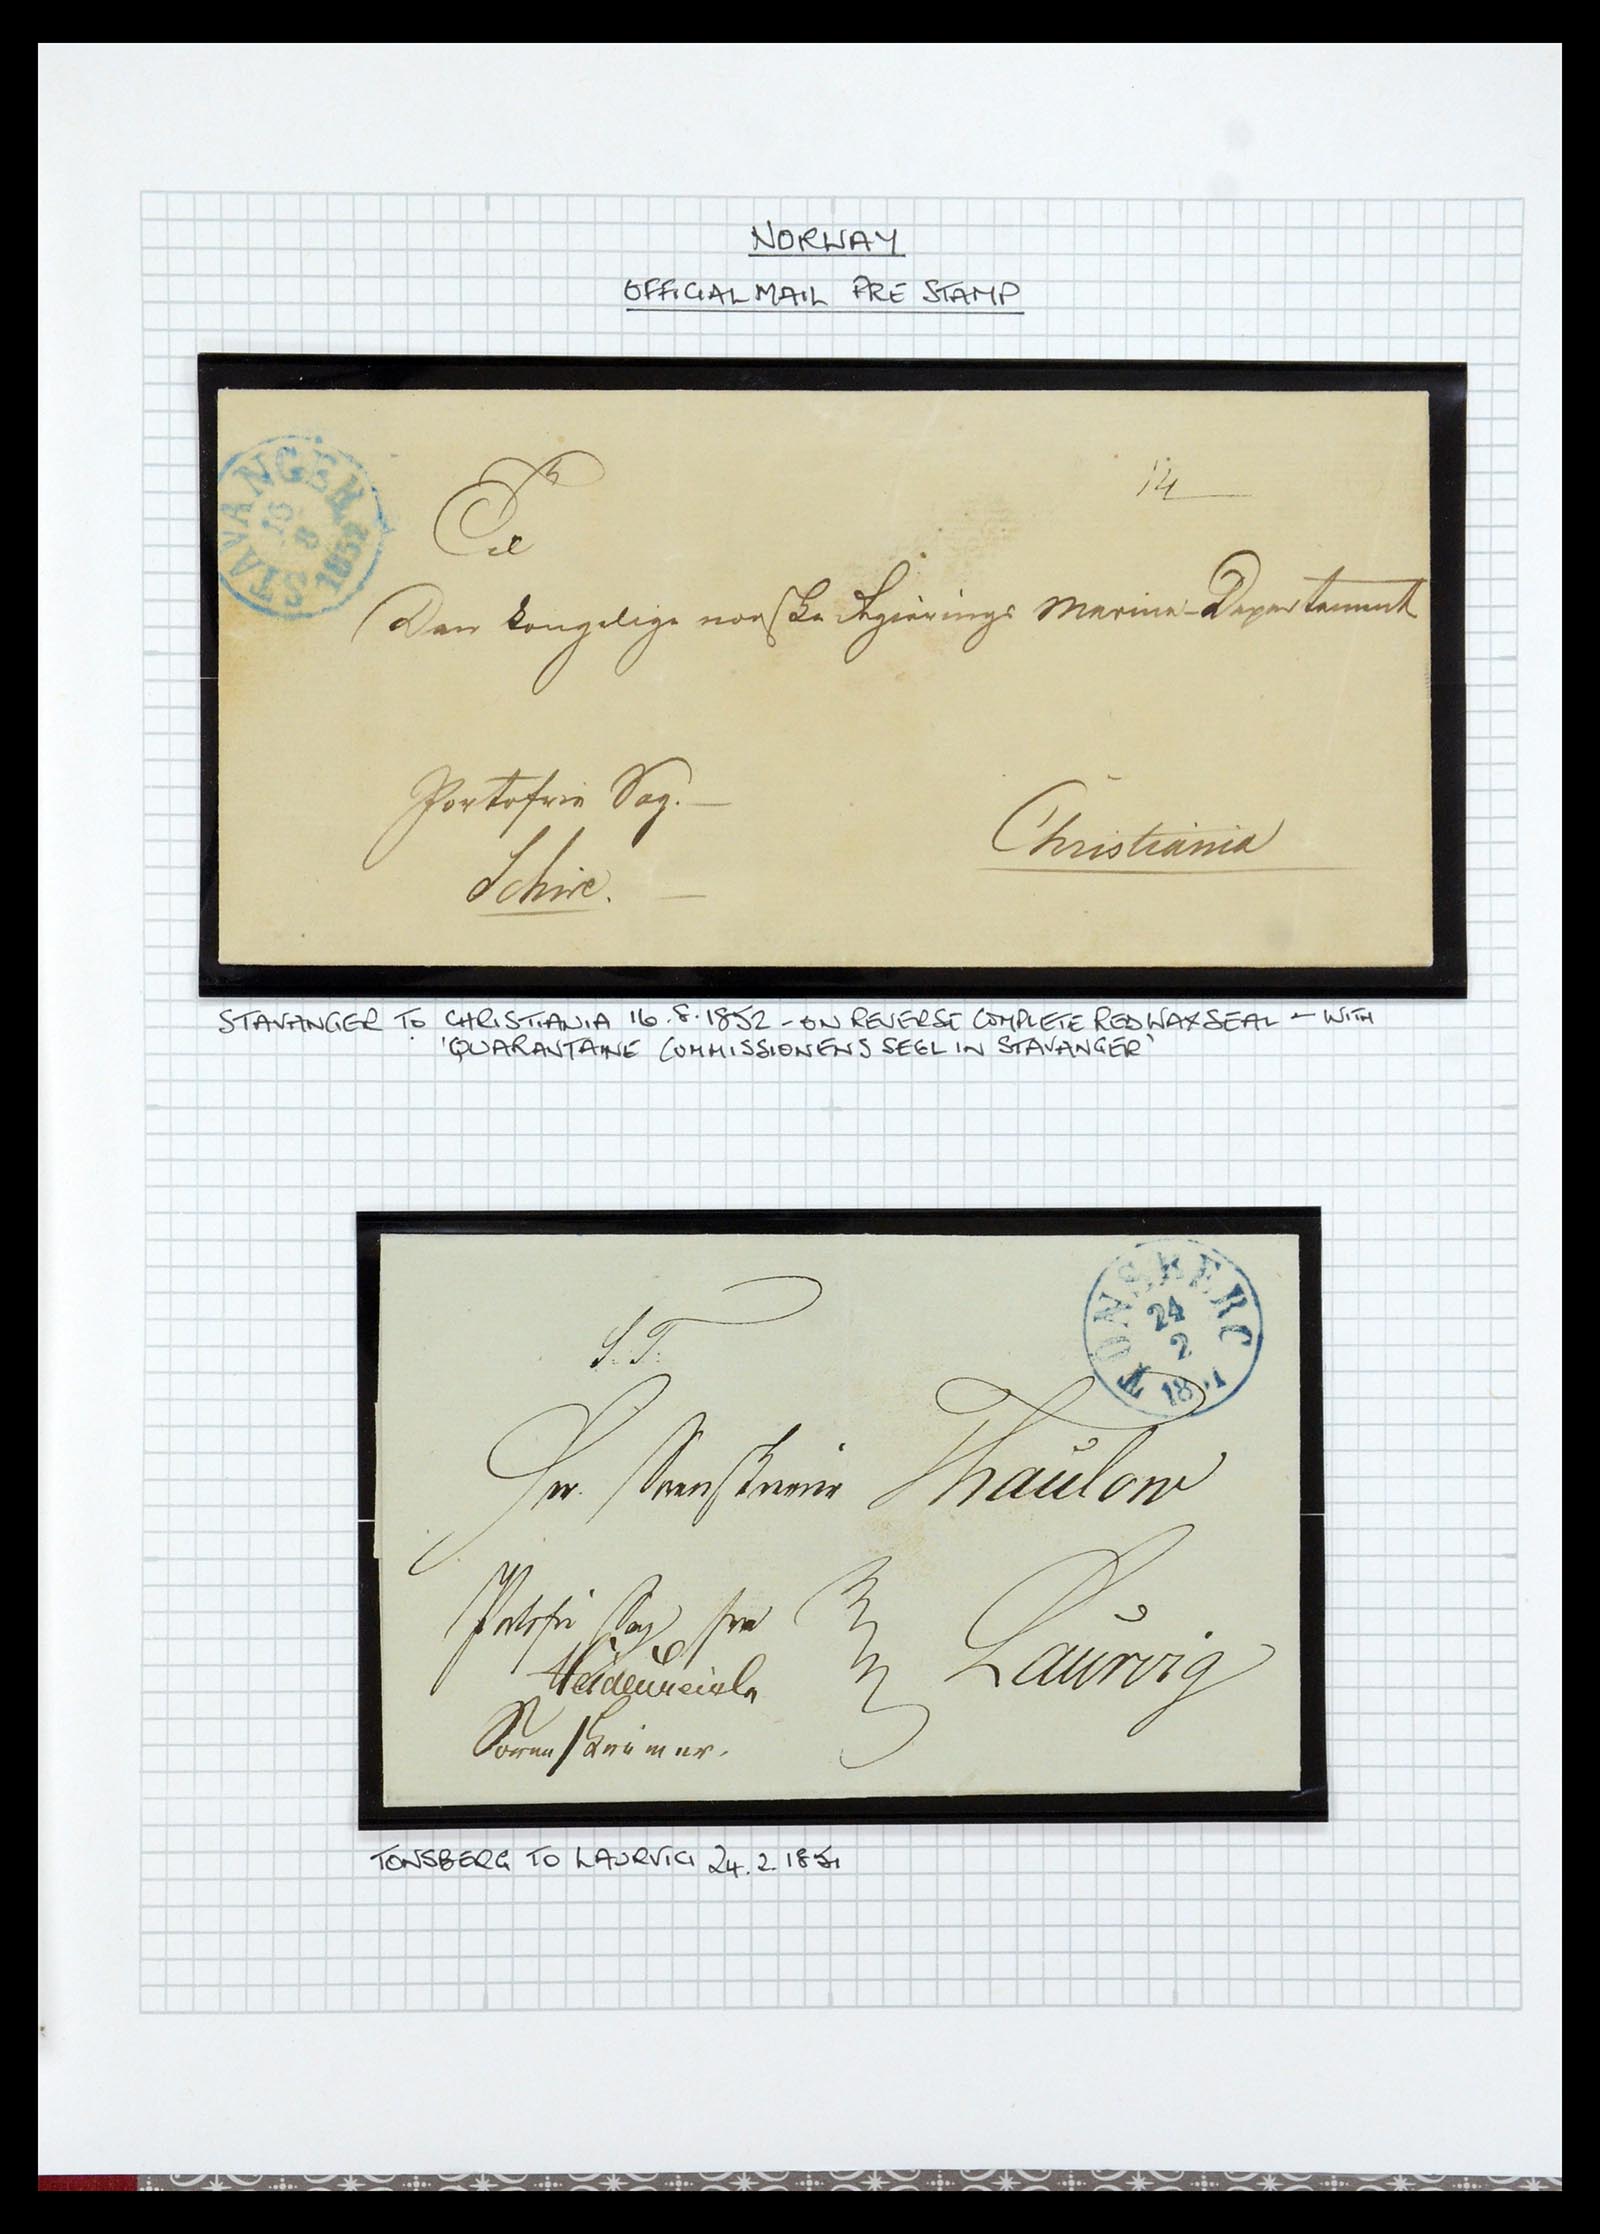 NORWAY
OFFICIAL MAIL PRE STAMP
STAVANGER
16
8
1852
Til
14
Den kongelige norske Regjerings Marine-Departement
Portofrie Sag.
Christiania
Schive.
STAVANGER TO CHRISTIANIA 16.8.1852 - ON REVERSE COMPLETE RED WAX SEAL - WITH
'QUARANTAINE COMMISSIONENS SEGL IN STAVANGER'
TØNSBERG
24
2
S.T.
Hr. Thaulow
Portofri Sag fra
Laurvig
Sorenskriver.
TONSBERG TO LAURVIG 24.2.1851